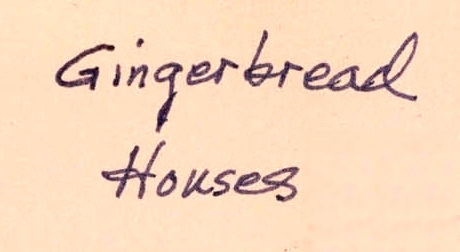 Gingerbread
Houses